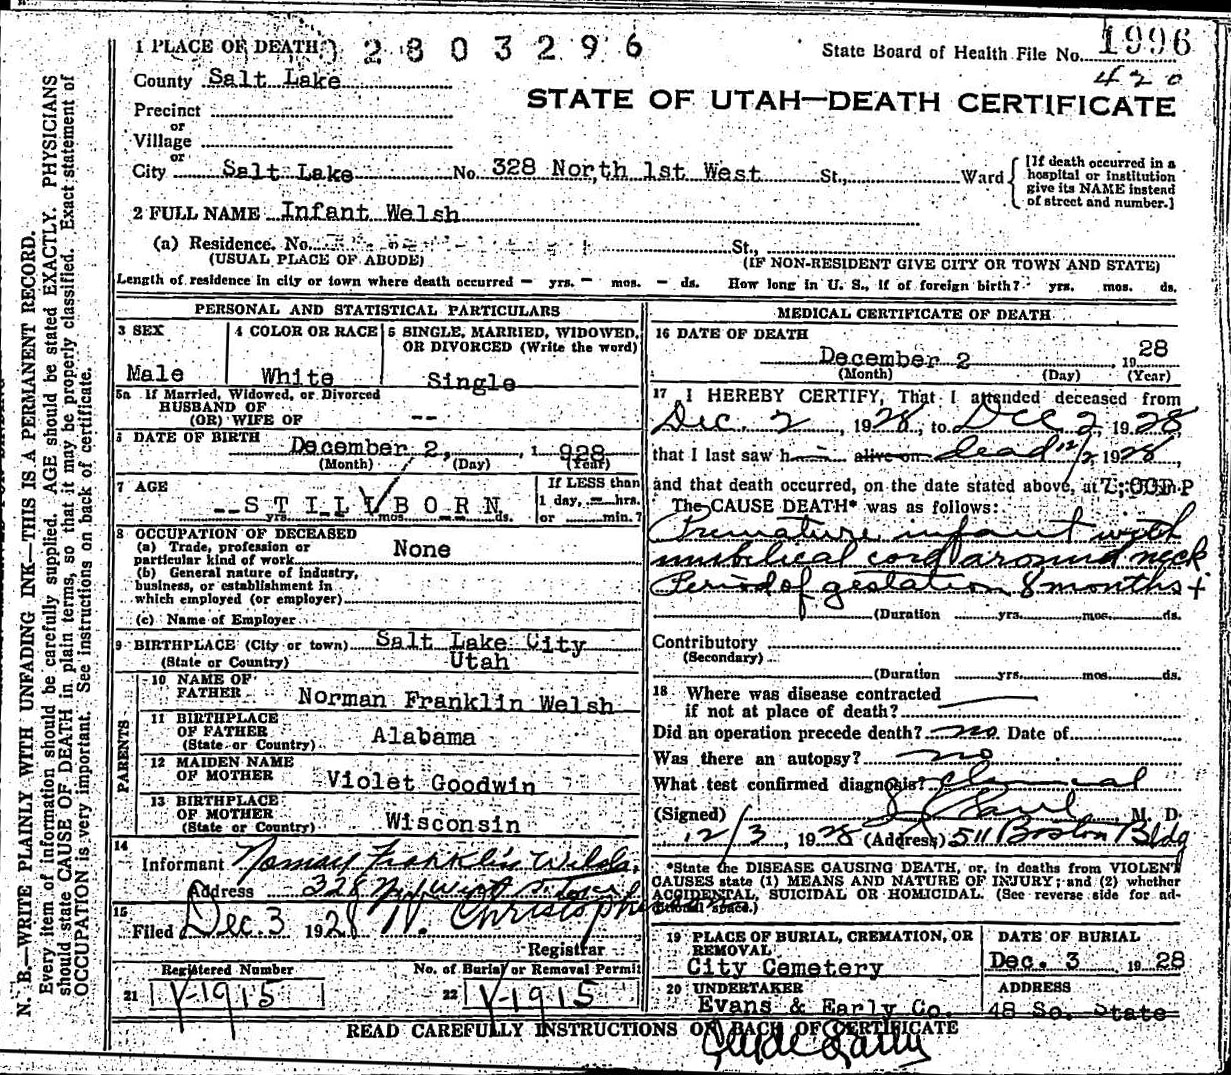 N. B.—WRITE PLAINLY WITH UNFADING INK—THIS IS A PERMANENT RECORD.
Every item of information should be carefully supplied. AGE should be stated EXACTLY. PHYSICIANS
should state CAUSE OF DEATH in plain terms, so that it may be properly classified. Exact statement of
OCCUPATION is very important. See instructions on back of certificate.
1 PLACE OF DEATH 2803296
State Board of Health File No. 1996
420
County Salt Lake
STATE OF UTAH—DEATH CERTIFICATE
Precinct
or
Village
or
City Salt Lake No. 328 North 1st West St., Ward
[If death occurred in a
hospital or institution
give its NAME instead
of street and number.]
2 FULL NAME Infant Welsh
(a) Residence. No. St.,
(USUAL PLACE OF ABODE) (IF NON-RESIDENT GIVE CITY OR TOWN AND STATE)
Length of residence in city or town where death occurred - yrs. - mos. - ds. How long in U. S., if of foreign birth? yrs. mos. ds.
PERSONAL AND STATISTICAL PARTICULARS
3 SEX
Male
4 COLOR OR RACE
White
5 SINGLE, MARRIED, WIDOWED,
OR DIVORCED (Write the word)
Single
5a If Married, Widowed, or Divorced
HUSBAND OF
(OR) WIFE OF --
6 DATE OF BIRTH December 2, 1928
(Month) (Day) (Year)
7 AGE
--STILLBORN
yrs. mos. ds.
If LESS than
1 day, hrs.
or min.?
8 OCCUPATION OF DECEASED
(a) Trade, profession or
particular kind of work None
(b) General nature of industry,
business, or establishment in
which employed (or employer)
(c) Name of Employer
9 BIRTHPLACE (City or town) Salt Lake City
(State or Country) Utah
PARENTS
10 NAME OF
FATHER Norman Franklin Welsh
11 BIRTHPLACE
OF FATHER
(State or Country) Alabama
12 MAIDEN NAME
OF MOTHER Violet Goodwin
13 BIRTHPLACE
OF MOTHER
(State or Country) Wisconsin
14
Informant Franklin Welsh
Address 328
15
Filed Dec. 3 1928
Registrar
Registered Number
21 V-1915
No. of Burial or Removal Permit
22 V-1915
MEDICAL CERTIFICATE OF DEATH
16 DATE OF DEATH
December 2 1928
(Month) (Day) (Year)
17 I HEREBY CERTIFY, That I attended deceased from
Dec. 2, 1928, to Dec 2, 1928
that I last saw h alive on dead 12/2 1928,
and that death occurred, on the date stated above, at 7:00 P m.
The CAUSE DEATH* was as follows:
Premature infant with
umbilical cord around neck
Period of gestation 8 months +
(Duration yrs. mos. ds.
Contributory
(Secondary)
(Duration yrs. mos. ds.
18 Where was disease contracted
if not at place of death?
Did an operation precede death? no Date of
Was there an autopsy? no
What test confirmed diagnosis? clinical
(Signed) M. D.
12/3, 1928 (Address) 511 Boston Bldg
*State the DISEASE CAUSING DEATH, or, in deaths from VIOLENT
CAUSES state (1) MEANS AND NATURE OF INJURY; and (2) whether
ACCIDENTAL, SUICIDAL OR HOMICIDAL. (See reverse side for ad-
ditional space.)
19 PLACE OF BURIAL, CREMATION, OR
REMOVAL
City Cemetery
DATE OF BURIAL
Dec. 3 1928
20 UNDERTAKER
Evans & Early Co.
ADDRESS
48 So. State
READ CAREFULLY INSTRUCTIONS ON BACK OF CERTIFICATE
Clyde Early